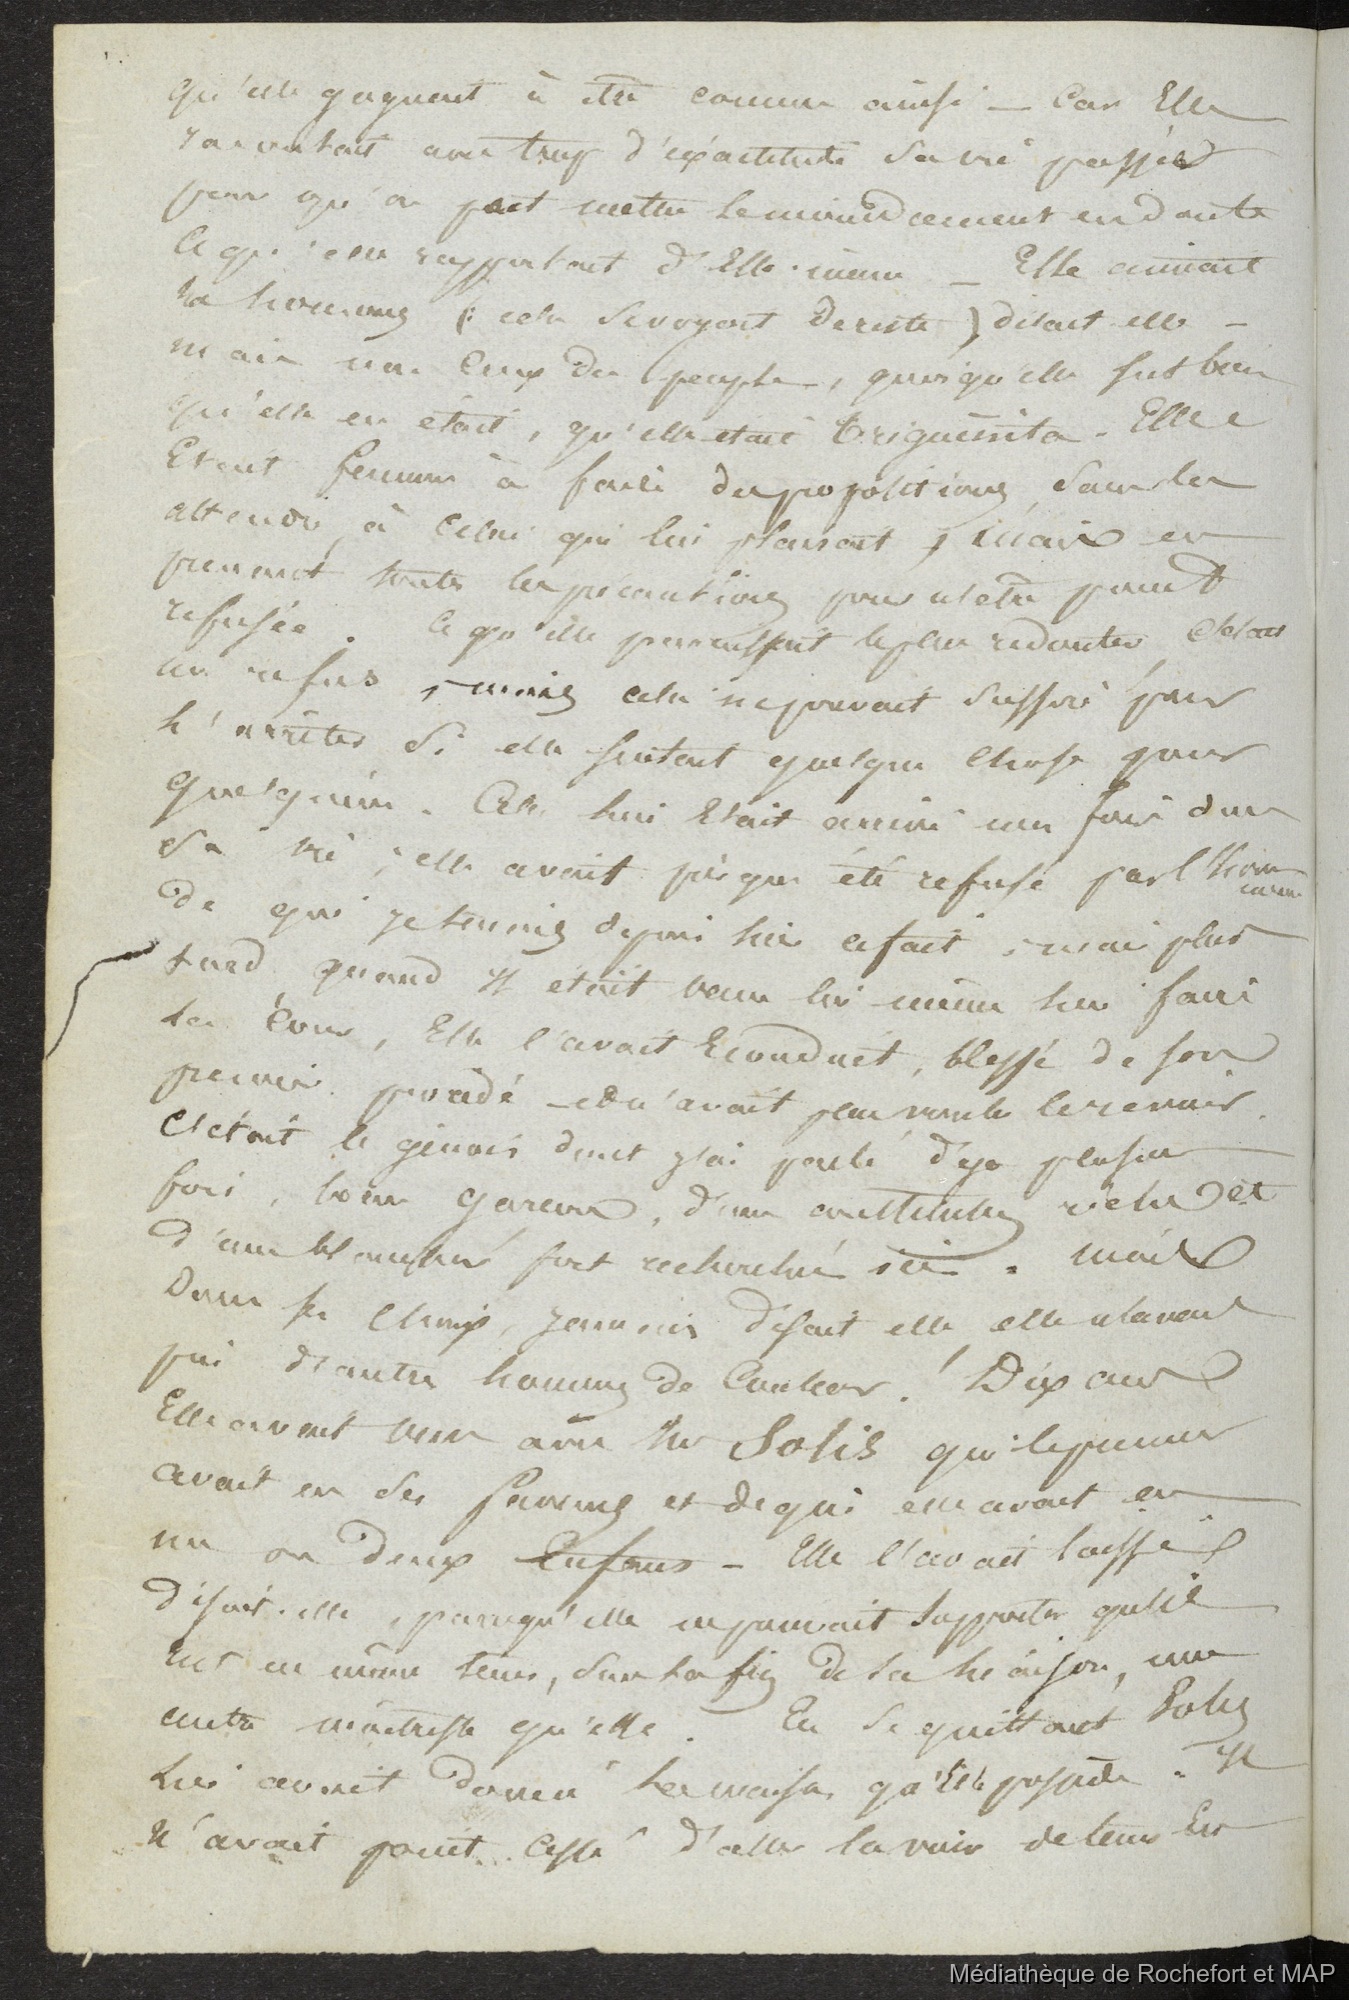 qu'elle gagnent à être connue ainsi — Car Elle
racontait avec trop d'exactitude sa vie passée
pour qu'on put mettre le moindrement en doute
ce qu'elle rapportait d'Elle-même — Elle aimait
les hommes (cela se voyait de reste) disait elle —
mais non Ceux du peuple, quoiqu'elle sut bien
qu'elle en était, qu'elle était trigueñita. Elle
Etait femme à faire des propositions, sans les
attendre, à celui qui lui plaisait, mais en
prenant toutes les précautions pour n'être point
refusée. Ce qu'elle paraissait le plus redouter, c'était
un refus, mais cela ne pouvait suffire pour
l'arrêter si elle sentait quelque chose pour
quelqu'un. Cela lui était arrivé une fois dans
sa vie; elle avait presque été refusé par l'homme
de qui je tenais depuis hier ce fait, mais plus
tard, quand il était venu lui même lui faire
la Cour, Elle l'avait Econduit, blessé de son
premier procédé et n'avait plus voulu le revoir.
C'était le génois dont j'ai parlé déja plusieurs
fois, beau garçon, d'une constitution riche et
d'une blancheur fort recherchée ici. Mais
Dans ses Choix, jamais disait elle, elle n'avait
pris d'autres hommes de Couleur. Dix ans
Elle avait vécu avec Mr Solis qui le premier
avait eu ses faveurs et de qui elle avait eu
un ou deux Enfans — Elle l'avait laissé,
disait-elle, parcequ'elle ne pouvait supporter qu'il
eut en même tems, sur la fin de la liaison, une
autre maîtresse qu'elle. En se quittant Solis
lui avait donné la maison qu'Elle possède. Il
n'avait point cessé d'aller la voir de tems En